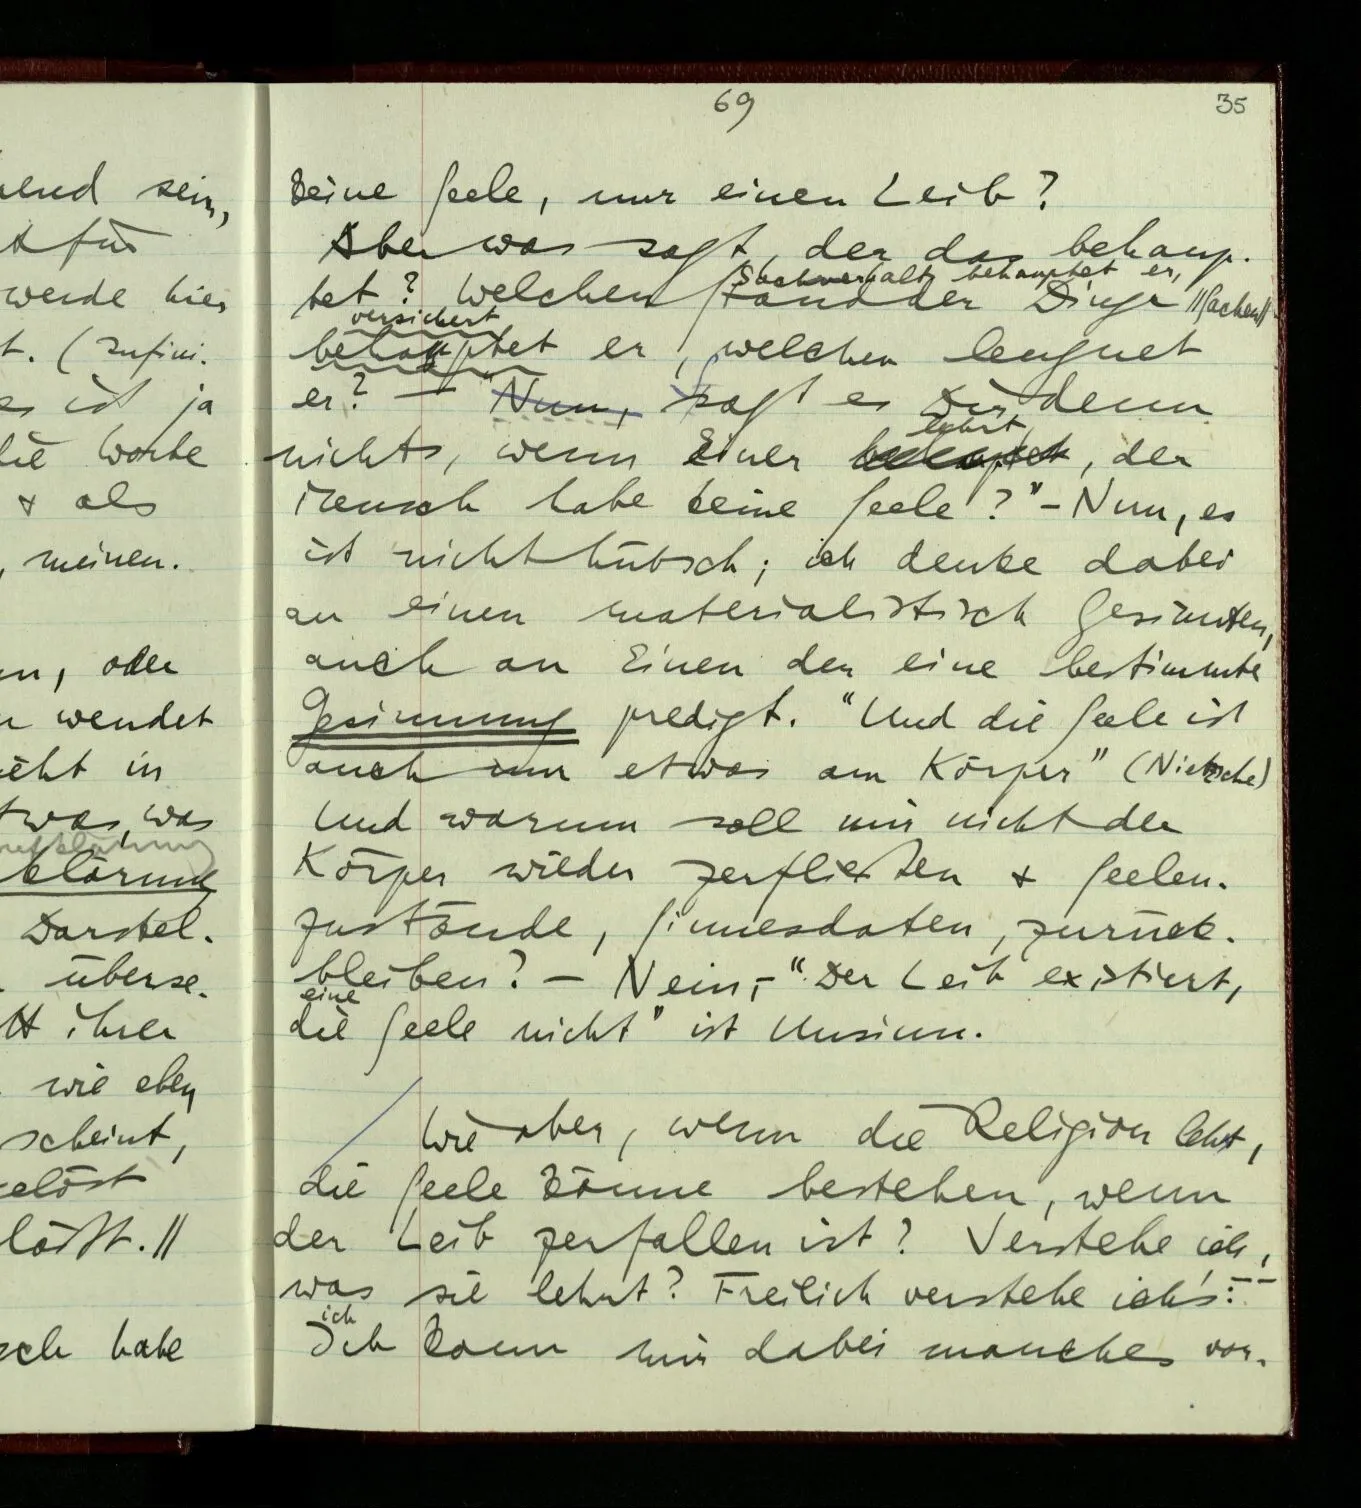 69
35
keine Seele, nur einen Leib?
Aber was sagt, der das behaup-
Sachverhalt behauptet er,
tet? Welchen Stand der Dinge //Sachen//
versichert
behauptet er, welchen leugnet
er? – "Nun, sagt es Dir denn
lehrt
nichts, wenn Einer behauptet, der
Mensch habe keine Seele?" – Nun, es
ist nicht hübsch; ich denke dabei
an einen materialistisch Gesinnten,
auch an Einen der eine bestimmte
Gesinnung predigt. "Und die Seele ist
auch nur etwas am Körper" (Nietzsche)
Und warum soll mir nicht der
Körper wieder zerfließen & Seelen-
zustände, Sinnesdaten, zurück-
bleiben? – Nein, – "Der Leib existiert,
eine
die Seele nicht" ist Unsinn.
Wie aber, wenn die Religion lehrt,
die Seele könne bestehen, wenn
der Leib zerfallen ist? Verstehe ich,
was sie lehrt? Freilich verstehe ich's:
ich
Ich kann mir dabei manches vor-
sein,
für
werde hier
es ist ja
die Worte
& als
, meinen.
, oder
wendet
in
was
klärung
Darstel-
überse-
ihrer
wie eben
scheint,
habe